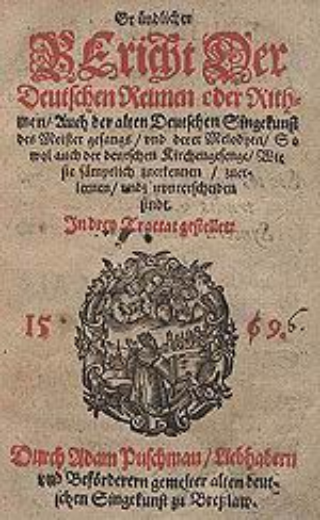 Gründlicher
BEricht Der
Deutschen Reimen oder Rith-
men/ Auch der alten Deutschen Singekunst
des Meister gesangs/ vnd derer Melodyen/ So
wol auch der deutschen Kirchengesenge/ Wie
sie sämptlich zuerkennen / zuer-
lernen/ vnd zuunterscheiden
sindt.
In drey Tractat gestellett
15 69.6.
Durch Adam Puschman/ Liebhabern
vnd Beförderern gemelter alten deut-
schen Singekunst zu Breßlaw.